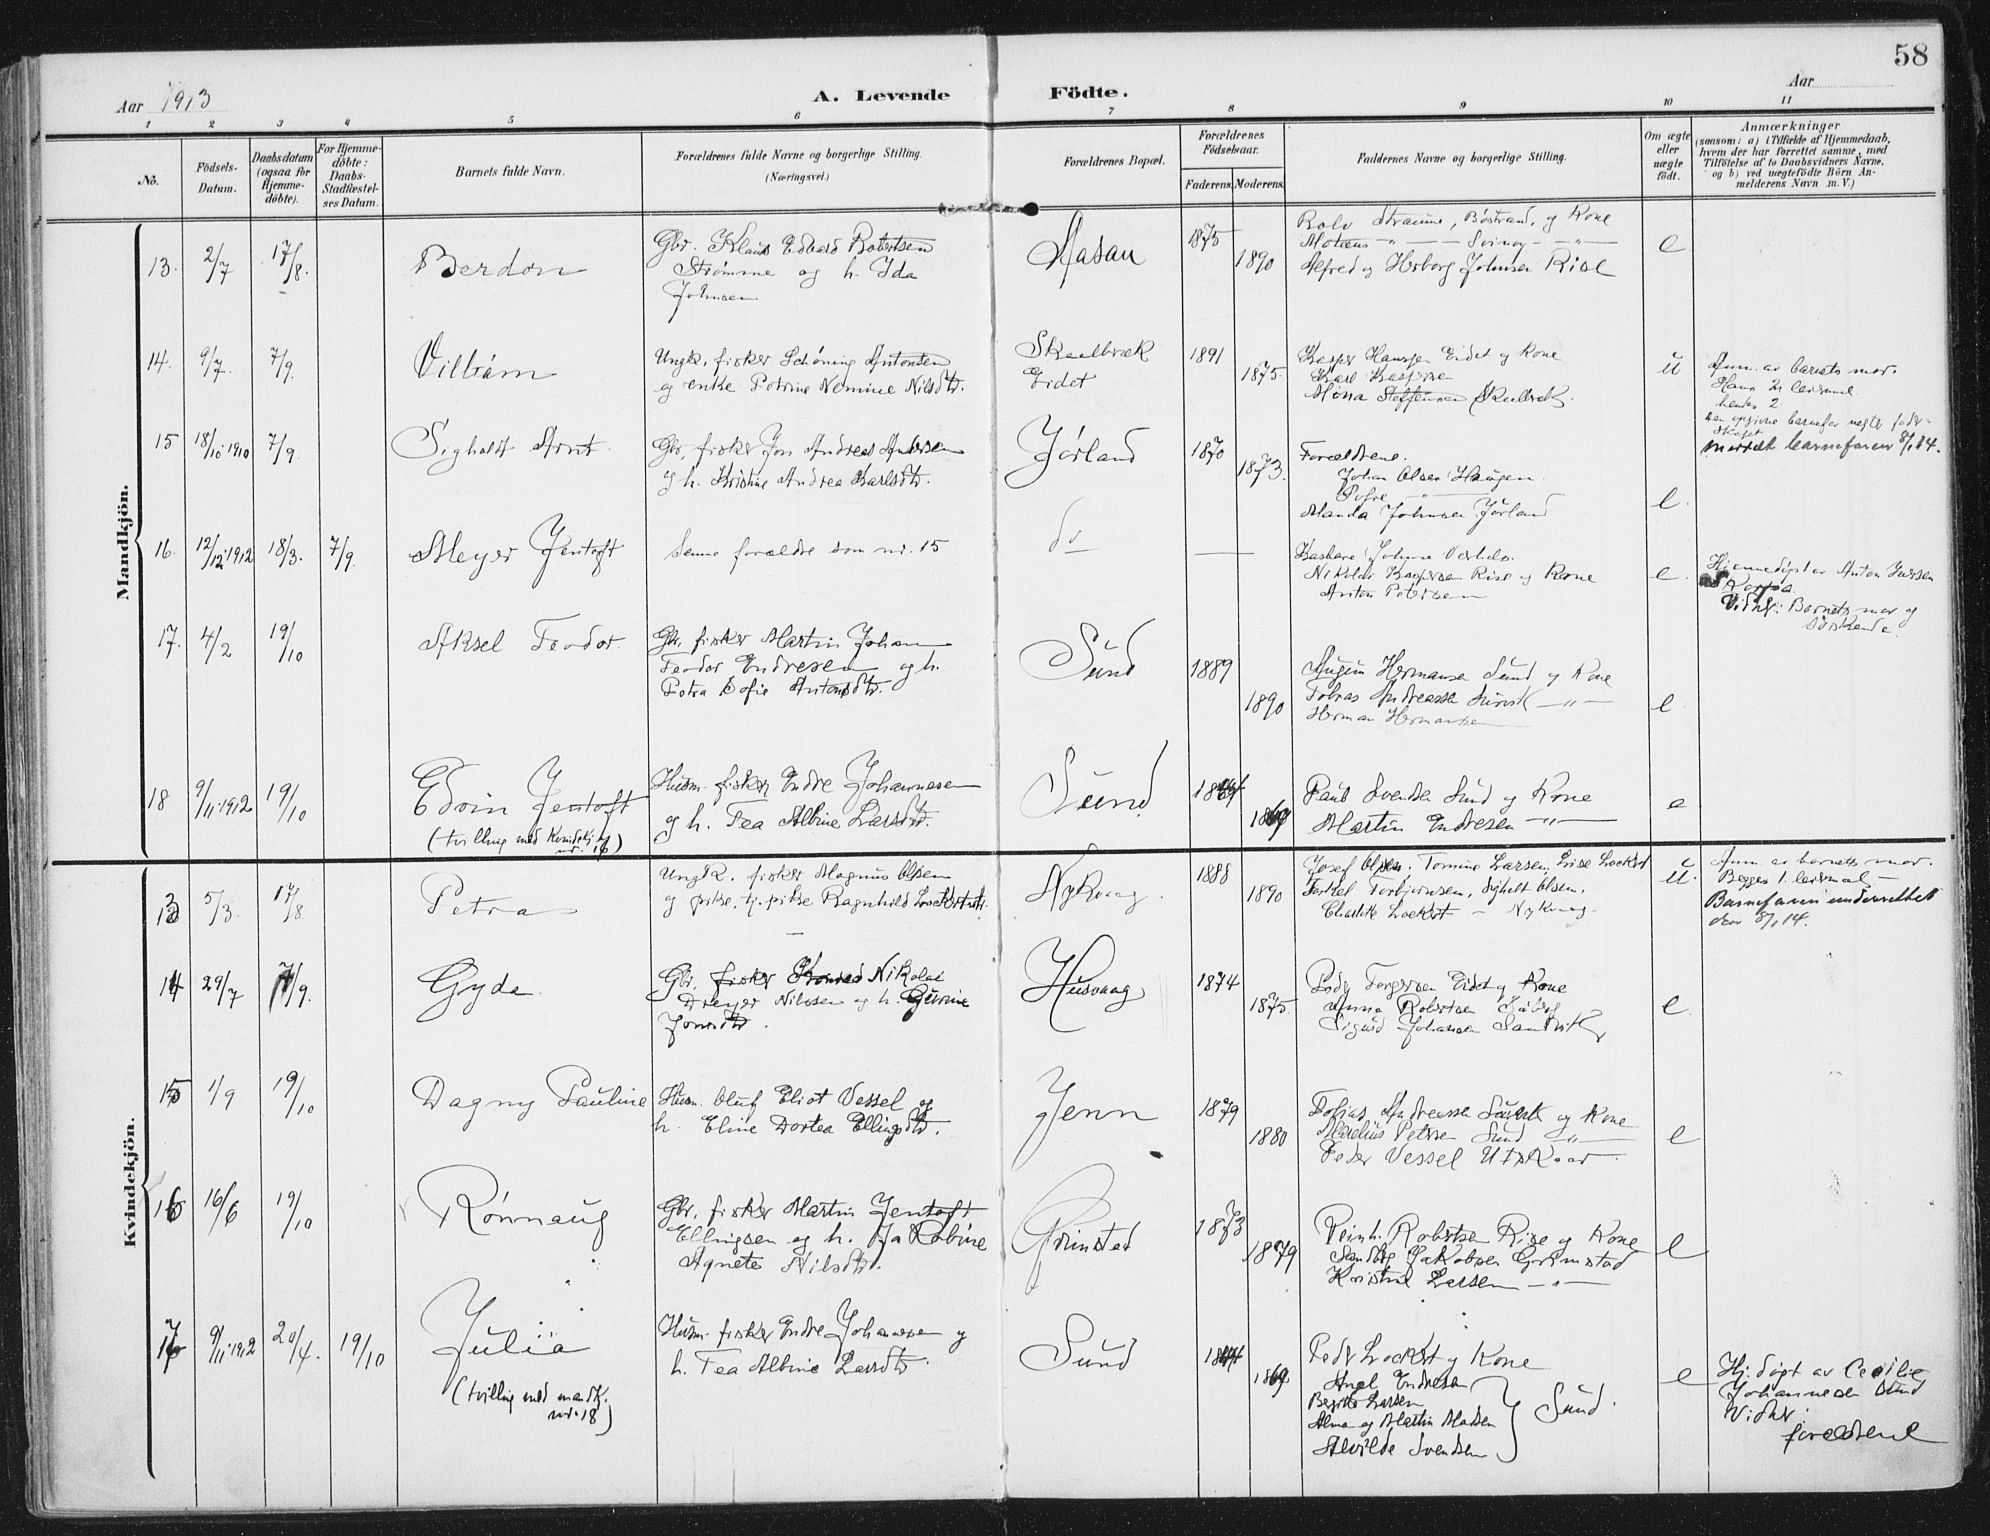 58
Aar 1913 A. Levende Födte. Aar
1 2 3 4 5 6 7 8 9 10 11
No.
Födsels-Datum.
Daabsdatum (ogsaa for Hjemme-döbte).
For Hjemme-döbte: Daabs-Stadfæstel-ses Datum.
Barnets fulde Navn.
Forældrenes fulde Navne og borgerlige Stilling.
(Næringsvei.)
Forældrenes Bopæl.
Forældrenes Födselsaar.
Faderens. Moderens.
Faddernes Navne og borgerlige Stilling.
Om ægte eller uægte födt.
Anmærkninger
(saasom: a) i Tilfælde af Hjemmedaab,
hvem der har forrettet samme, med
Tilföielse af to Daabsvidners Navne,
og b) ved uægtefödte Börn An-
melderens Navn m. V.)
Mandkjön.
13. 2/7 17/8. Berdon
Gbr. Klaus Edvard Robertsen
Strømme og h. Ida
Johnsen
Aasan 1875 1890
Rolv Straume, Bøstrand, og Kone
Svinøy
Alfred og Herborg Johnsen Rise
e
14. 9/7. 7/9. Vilhām
Ungk. fisker Schøning Antonsen
og enke Petrine Nomine Nilsdtr.
Skaalbræk
Eidet
1891 1875.
Kasper Hanssen Eidet og Kone
Karl Kaspersen
Mona Steffensen Skalbræk.
u
Anm. av barnets mor.
Hans 2. leiermaal
hendes 2.
Den opgivne barnefar negter fader-
skapet
barnefaren 8/1 14.
15 18/10 1910 7/9. Sigholt Arnt.
Gbr. fisker Jon Andreas Andersen
og h. Kristine Andrea Karlsdtr.
Jørland 1870 1873.
Forældrene.
Johan Olsen Haugen.
Manda Johnsen Jørland
e.
16. 12/12 1912 18/3. 7/9. Meyer Jentoft
Samme forældre som nr. 15
do
Nikolai Kaspersen Rise og Kone
Anton Petersen
e.
Hjemmedøpt av Anton Iversen
Korpaa.
Vidne: Barnets mor og
søskende.
17. 4/2 19/10 Aksel Teodor.
Gbr. fisker Martin Johan
Teodor Endresen og h.
Petra Sofie Antonsdtr.
Sund 1889 1890
August Hermansen Sund og Kone
Tobias Andreassen
Herman Hermansen
e.
18 9/11 1912 19/10 Edvin Jentoft
(tvilling med Kvindekj. nr. 16)
Husm. fisker Endre Johannesen
og h. Tea Albine Larsdtr.
Sund. 1869
Paul Svendsen Sund og Kone
Martin Endresen
e
Kvindekjön.
13 5/3. 17/8 Petra
Ungk. fisker Magnus Olsen
og pike, tj. pike Ragnhild Lockertsdtr.
Nykvaag. 1888 1890
Josef Olsen, Tomine Larsen, Lise Lockert
Torkel Torbjørnsen, Sigholt Olsen.
Charlotte Lockert – Nykvaag.
u.
Anm. av barnets mor.
Begges 1. leiermaal –
Barnefaren underrettet
den 8/1 14.
14 29/7 7/9. Gyda.
Gbr. fisker Konrad Nikolai
Dreyer Nilssen og h. Gurine
Jonsdtr.
Husvaag 1874 1875.
Peder Torgersen Eidet og Kone
Anna Robertsen
Sigurd Johansen Sandvik
e.
15 1/9 19/10 Dagny Pauline
Husm. Oluf Eliot Vessel og
h. Eline Dortea Ellingsdtr.
Jenn 1879 1880
Tobias Andreassen og Kone
Marelius Petersen Sund
Peder Vessel Utskaar
e
16 16/6 19/10 Rønnaug
Gbr. fisker Martin Jentoft
Ellingsen og h. Ida Robine
Agnete Nilsdtr.
Grimstad 1873 1879
Reinh. Robertsen Rise og Kone
Sandberg Jakobsen Grimstad
Kristine Larsen
e
17 9/11 1912 20/4. 19/10 Julia
(tvilling med mandk. nr. 18)
Husm. fisker Endre Johansen og
h. Tea Albine Larsdtr.
Sund 1869
Peder Lockert og Kone
Angel Endresen
Bergitte Larsen
Alma og Martin Madsen
Alvilde Svendsen
Sund.
e
Hj. døpt av Cecilie
Johannesen Sund
Vidner:
forældrene